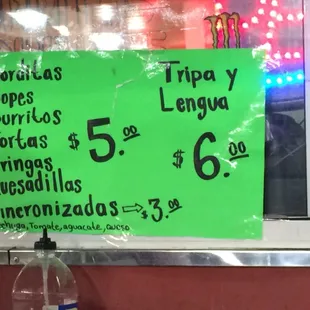 orditas
opes
urritos
ortas
ringas
uesadillas
$5.00
incronizadas ⇨ $3.00
echuga, Tomate, aguacate, queso
Tripa y
Lengua
$6.00